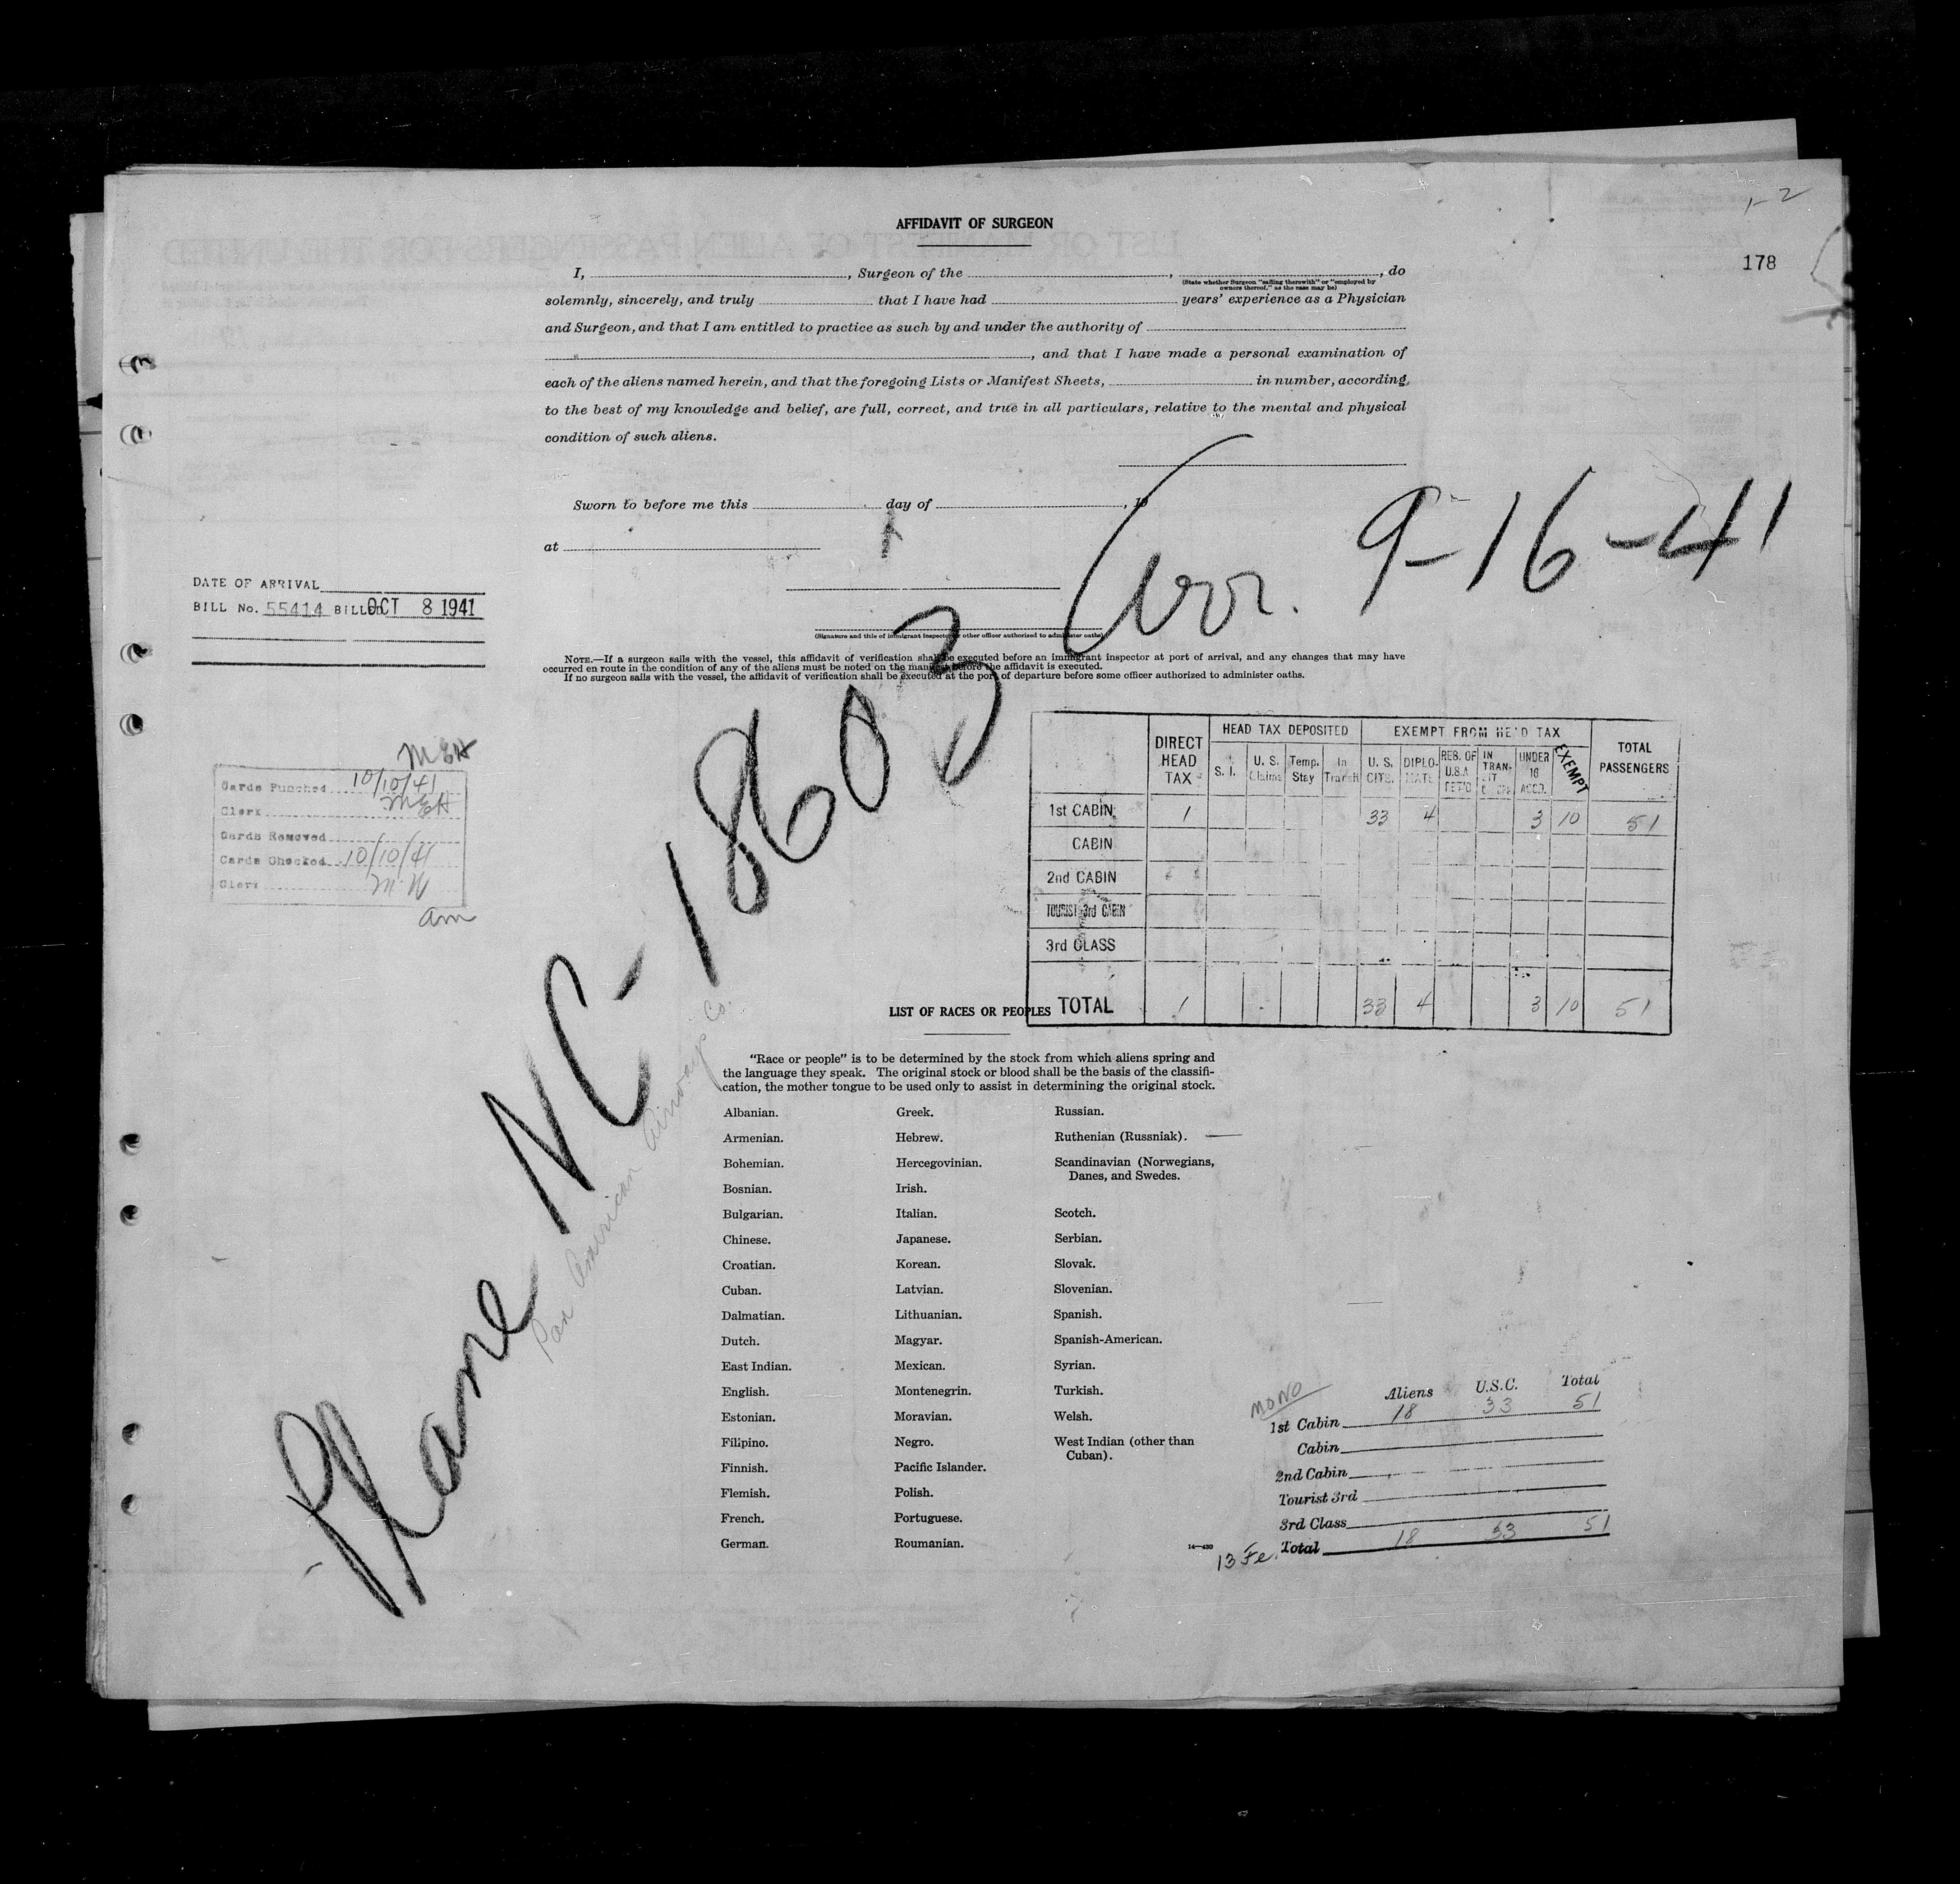 1-2
178
AFFIDAVIT OF SURGEON
I, , Surgeon of the , , do
(State whether Surgeon "sailing therewith" or "employed by
owners thereof," as the case may be)
solemnly, sincerely, and truly that I have had years' experience as a Physician
and Surgeon, and that I am entitled to practice as such by and under the authority of
, and that I have made a personal examination of
each of the aliens named herein, and that the foregoing Lists or Manifest Sheets, in number, according,
to the best of my knowledge and belief, are full, correct, and true in all particulars, relative to the mental and physical
condition of such aliens.
Sworn to before me this day of , 19
at
Arr. 9-16-41
DATE OF ARRIVAL
BILL No. 55414 BILLED OCT 8 1941
(Signature and title of immigrant inspector or other officer authorized to administer oaths)
NOTE.—If a surgeon sails with the vessel, this affidavit of verification shall be executed before an immigrant inspector at port of arrival, and any changes that may have
occurred en route in the condition of any of the aliens must be noted on the manifest before the affidavit is executed.
If no surgeon sails with the vessel, the affidavit of verification shall be executed at the port of departure before some officer authorized to administer oaths.
MEH
Cards Punched 10/10/41
Clerk MEH
Cards Removed
Cards Checked 10/10/41
Clerk
am
Plane NC-18603
Pan American Airways Co.
DIRECT HEAD TAX HEAD TAX DEPOSITED EXEMPT FROM HEAD TAX TOTAL PASSENGERS
S. I. U. S. Claims Temp. Stay In Transit U. S. CITS. DIPLOMATS RES. OF U.S.A. RET'D IN TRANSIT UNDER 16 ACCD. EXEMPT
1st CABIN 1 33 4 3 10 51
CABIN
2nd CABIN
TOURIST 3rd CABIN
3rd CLASS
TOTAL 1 33 4 3 10 51
LIST OF RACES OR PEOPLES
"Race or people" is to be determined by the stock from which aliens spring and
the language they speak. The original stock or blood shall be the basis of the classifi-
cation, the mother tongue to be used only to assist in determining the original stock.
Albanian.
Armenian.
Bohemian.
Bosnian.
Bulgarian.
Chinese.
Croatian.
Cuban.
Dalmatian.
Dutch.
East Indian.
English.
Estonian.
Filipino.
Finnish.
Flemish.
French.
German.
Greek.
Hebrew.
Hercegovinian.
Irish.
Italian.
Japanese.
Korean.
Latvian.
Lithuanian.
Magyar.
Mexican.
Montenegrin.
Moravian.
Negro.
Pacific Islander.
Polish.
Portuguese.
Roumanian.
Russian.
Ruthenian (Russniak).
Scandinavian (Norwegians,
Danes, and Swedes.
Scotch.
Serbian.
Slovak.
Slovenian.
Spanish.
Spanish-American.
Syrian.
Turkish.
Welsh.
West Indian (other than
Cuban).
14—430
MONO
Aliens U.S.C. Total
1st Cabin 18 33 51
Cabin
2nd Cabin
Tourist 3rd
3rd Class
13 Fe. Total 18 33 51